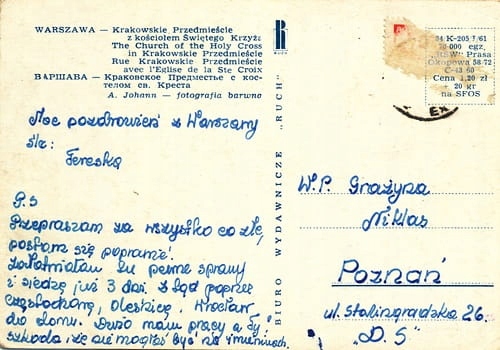 WARSZAWA — Krakowskie Przedmieście
z kościołem Świętego Krzyża
The Church of the Holy Cross
in Krakowskie Przedmieście
Rue Krakowskie Przedmieście
avec l'Eglise de la Ste Croix
ВАРШАВА — Краковское Предместье с кос-
телом св. Креста
A. Johann — fotografia barwna
RUCH
BIURO WYDAWNICZE „RUCH"
84 K-205 I/61
70 000 egz.
„RSW" Prasa
Okopowa 58/72
C-43 60
Cena 1,20 zł
+ 20 gr
na SFOS
Moc pozdrowień z Warszawy
śle:
Tereska
P.S
Przepraszam za wszystko co złe,
postaram się poprawić!
Załatwiałam tu pewne sprawy
i siedzę już 3 dni. Stąd poprzez
Częstochowę, Oleśnicę, Wrocław
do domu. Dużo mam pracy a Ty!
szkoda, że nie mogłaś być na imieninach.
W.P. Grażyna
Niklas
Poznań
ul. Stalingradzka 26.
„D. S"